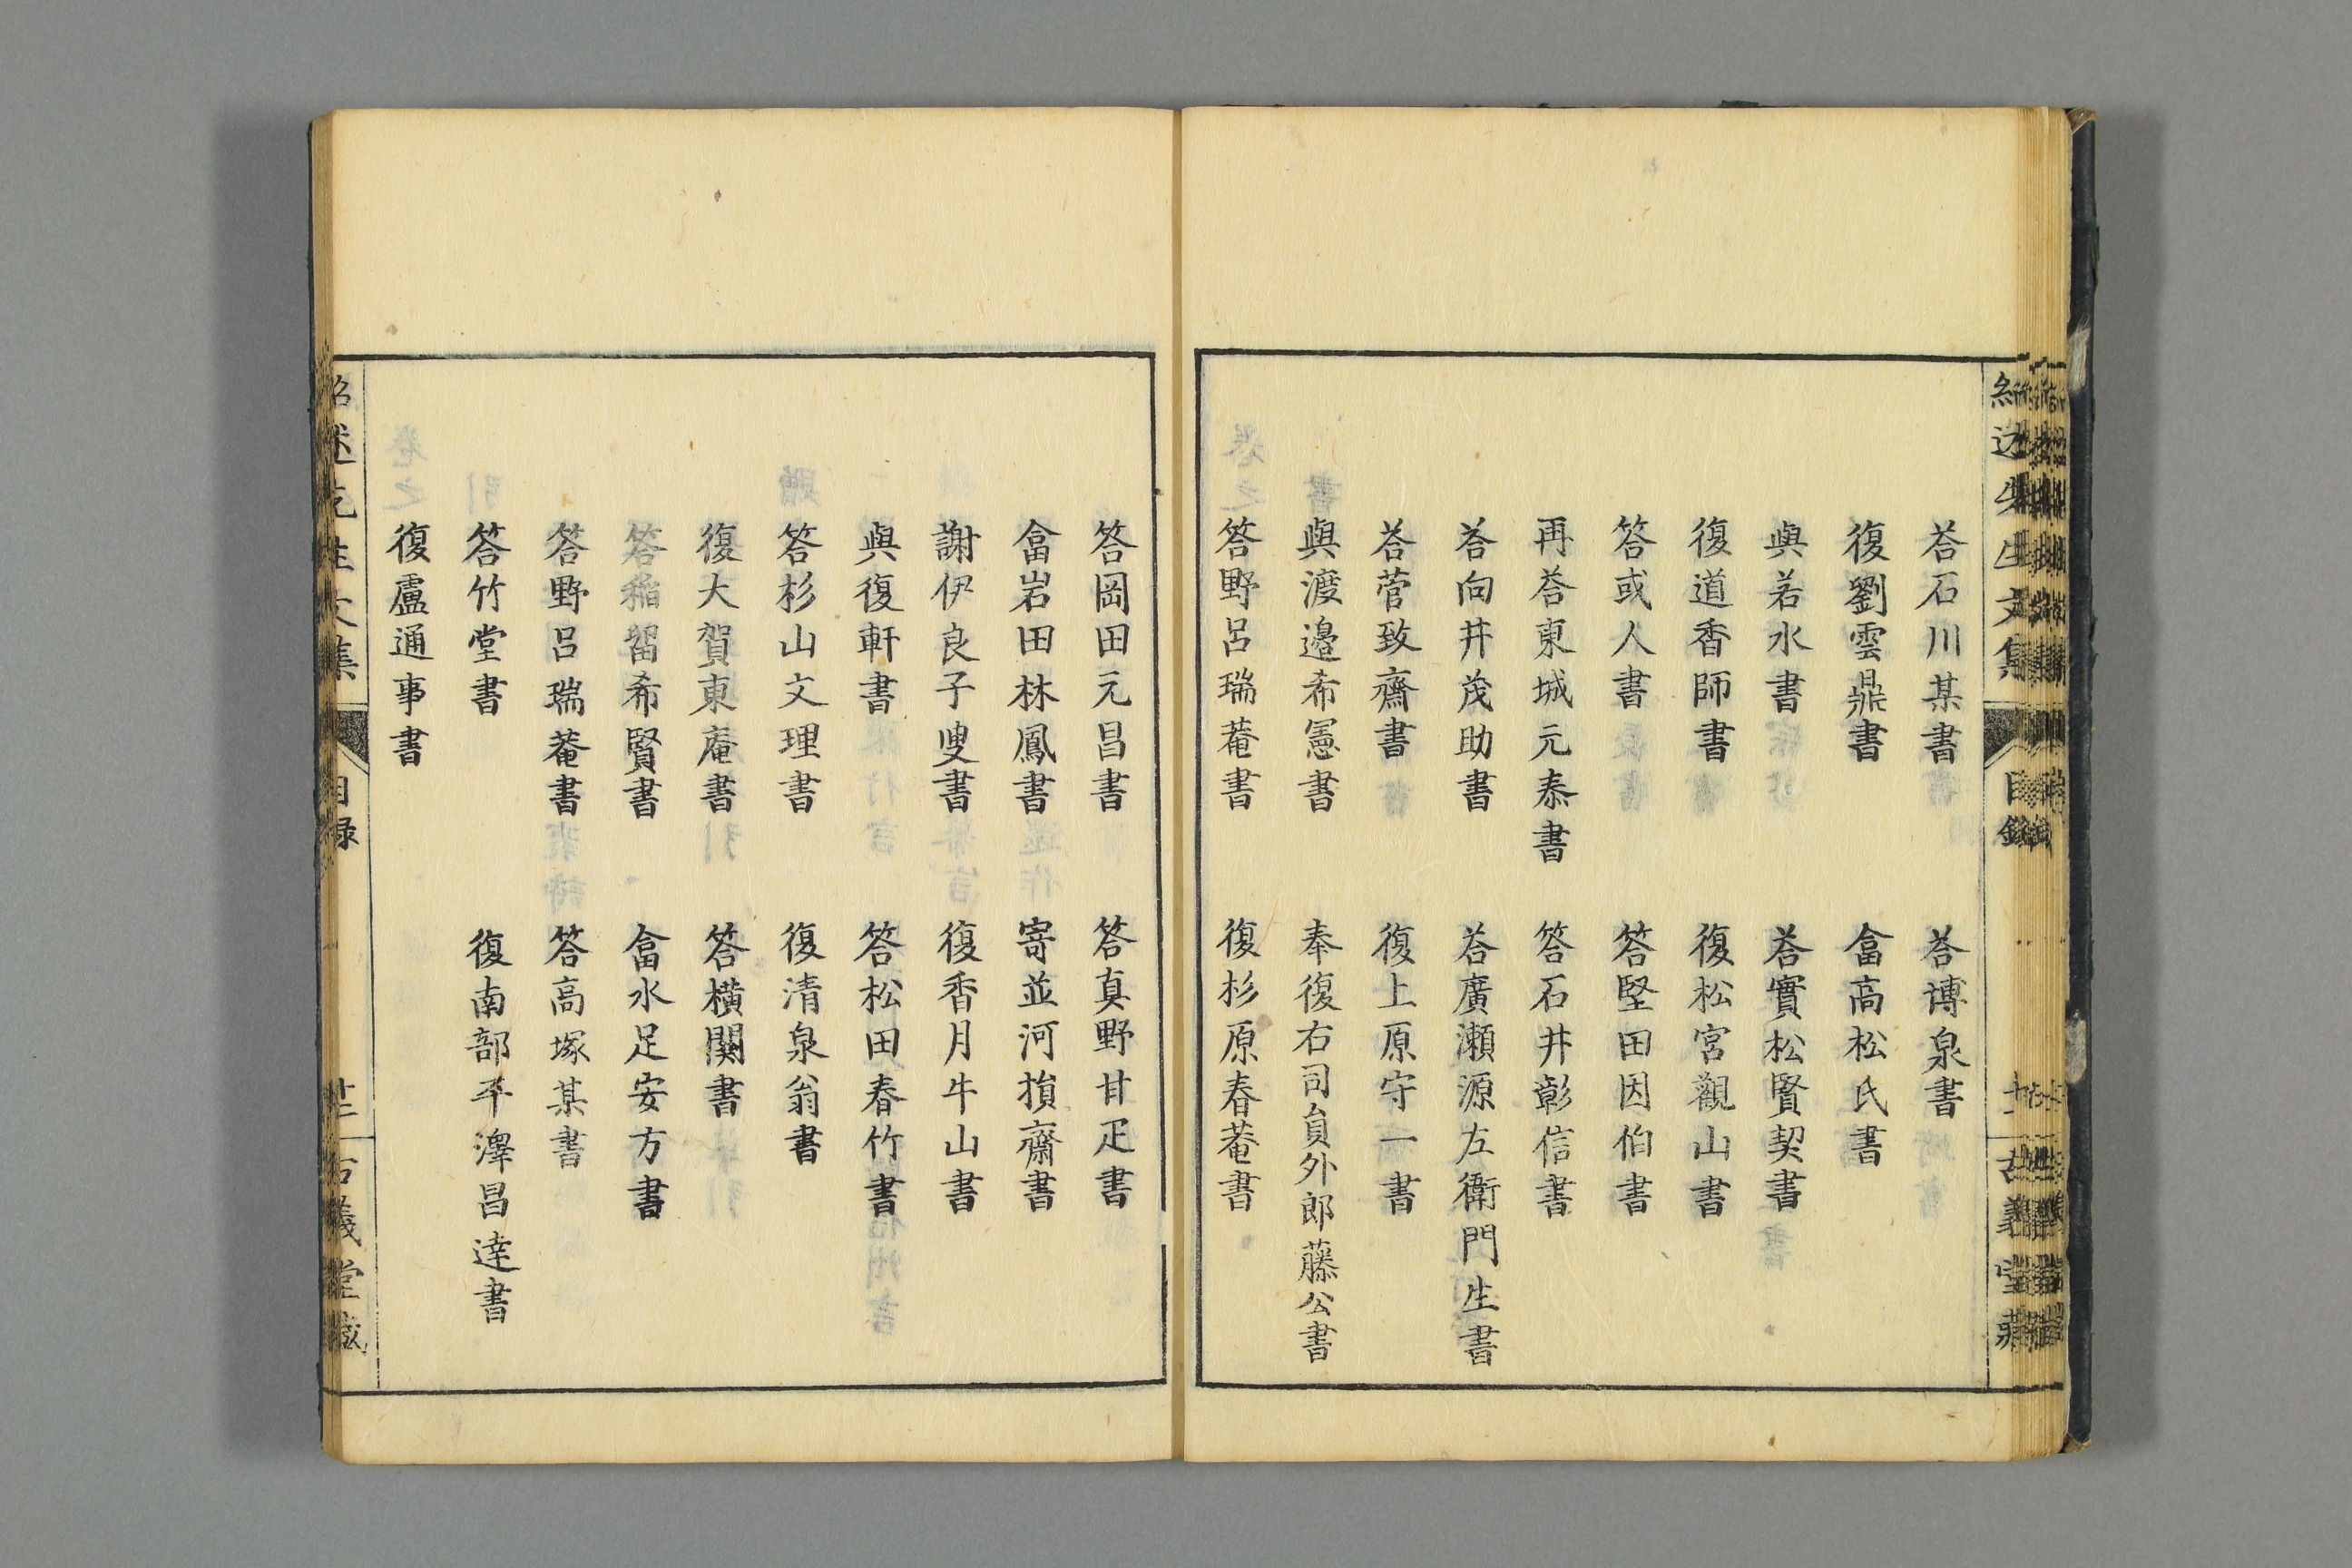 紹述先生文集 目録 古義堂藏
荅石川某書 荅博泉書
復劉雲鼎書 畣高松氏書
與若水書 荅實松賢契書
復道香師書 復松宮觀山書
答或人書 答堅田因伯書
再荅東城元泰書 答石井彰信書
荅向井茂助書 荅廣瀬源左衛門生書
荅菅致齋書 復上原守一書
與渡邉希憲書 奉復右司貟外郎藤公書
答野呂瑞菴書 復杉原春菴書
答岡田元昌書 答真野甘疋書
畣岩田林鳳書 寄並河損齋書
謝伊良子叟書 復香月牛山書
與復軒書 答松田春竹書
答杉山文理書 復清泉翁書
復大賀東庵書 答横関書
答稲留希賢書 畣水足安方書
答野呂瑞菴書 答高塚某書
答竹堂書 復南部平澤昌逹書
復盧通事書
紹述先生文集 目録 廿二 古義堂藏